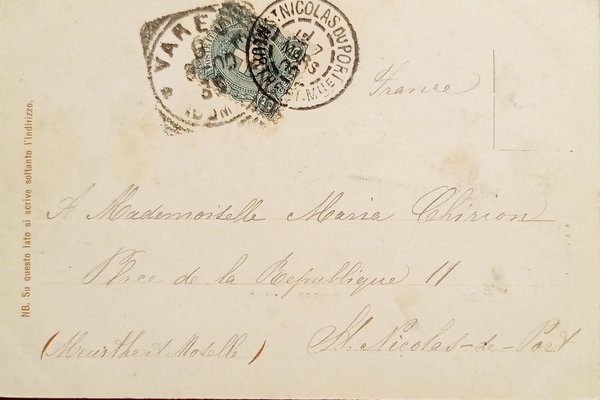 VARE
ST NICOLAS DU PORT
France
A Mademoiselle Maria Chirion
Place de la Republique 11
St. Nicolas-de-Port
(Meurthe et Moselle)
NB. Su questo lato si scrive soltanto l'indirizzo.